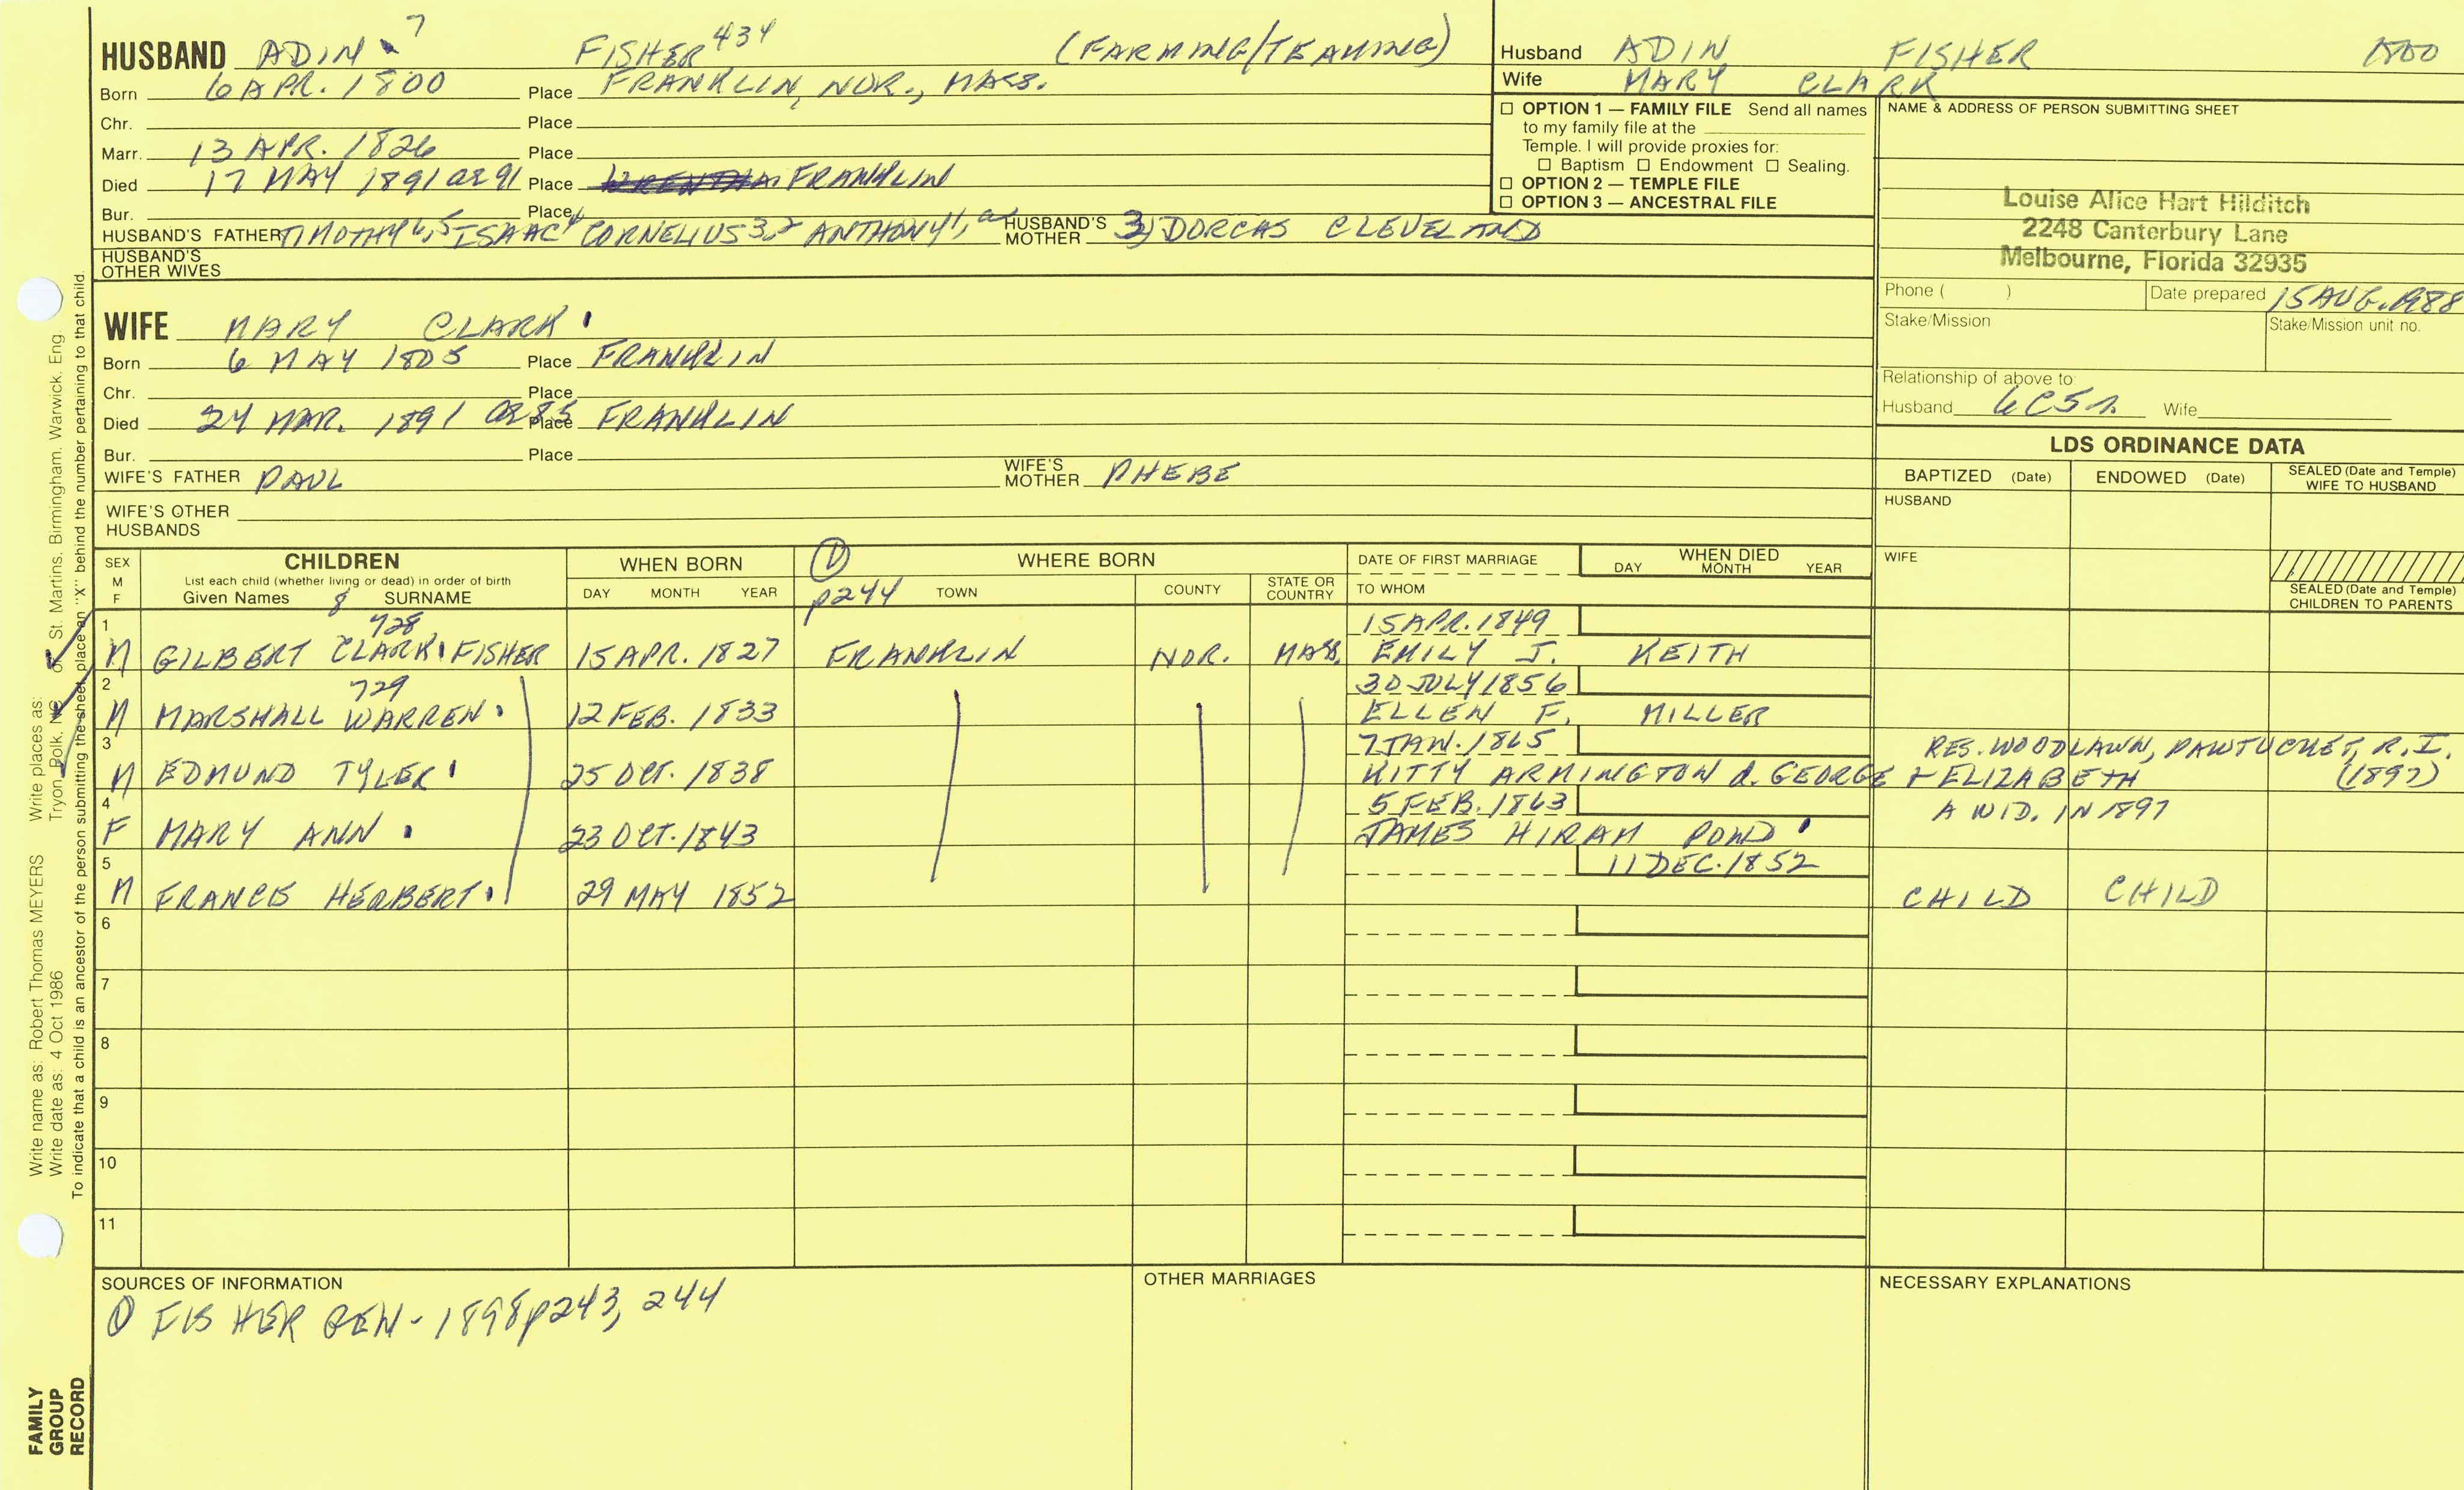 HUSBAND ADIN 7 FISHER 434 (FARMING/TEAMING)
Born 6 APR. 1800 Place FRANKLIN, NOR., MASS.
Chr. Place
Marr. 13 APR. 1826 Place
Died 17 MAY 1891 OR 91 Place FRANKLIN
Bur. Place
HUSBAND'S FATHER TIMOTHY 6,5 ISAAC 4 CORNELIUS 3,2 ANTHONY 1, HUSBAND'S MOTHER 3) DORCAS CLEVELAND
HUSBAND'S OTHER WIVES
Husband ADIN FISHER 1800
Wife MARY CLARK
☐ OPTION 1 — FAMILY FILE Send all names
to my family file at the
Temple. I will provide proxies for:
☐ Baptism ☐ Endowment ☐ Sealing.
☐ OPTION 2 — TEMPLE FILE
☐ OPTION 3 — ANCESTRAL FILE
NAME & ADDRESS OF PERSON SUBMITTING SHEET
Louise Alice Hart Hilditch
2248 Canterbury Lane
Melbourne, Florida 32935
Phone ( ) Date prepared 15 AUG. 1988
Stake/Mission Stake/Mission unit no.
Relationship of above to:
Husband 6C5R Wife
WIFE MARY CLARK
Born 6 MAY 1805 Place FRANKLIN
Chr. Place
Died 24 MAR. 1891 OR 85 Place FRANKLIN
Bur. Place
WIFE'S FATHER PAUL WIFE'S MOTHER PHEBE
WIFE'S OTHER HUSBANDS
LDS ORDINANCE DATA
BAPTIZED (Date) ENDOWED (Date) SEALED (Date and Temple) WIFE TO HUSBAND
HUSBAND
WIFE
SEALED (Date and Temple) CHILDREN TO PARENTS
SEX M F CHILDREN List each child (whether living or dead) in order of birth Given Names 8 SURNAME
WHEN BORN DAY MONTH YEAR
① p244 WHERE BORN TOWN COUNTY STATE OR COUNTRY
DATE OF FIRST MARRIAGE TO WHOM
WHEN DIED DAY MONTH YEAR
1 728 15 APR. 1849
M GILBERT CLARK FISHER 15 APR. 1827 FRANKLIN NOR. MASS. EMILY J. KEITH
2 729 30 JULY 1856
M MARSHALL WARREN 12 FEB. 1833 ELLEN F. MILLER
3 7 JAN. 1865 RES. WOODLAWN, PAWTUCKET, R.I.
M EDMUND TYLER 25 OCT. 1838 KITTY ARMINGTON d. GEORGE + ELIZABETH (1897)
4 5 FEB. 1863 A WID. IN 1897
F MARY ANN 23 OCT. 1843 JAMES HIRAM POND
5 11 DEC. 1852
M FRANCIS HERBERT 29 MAY 1852 CHILD CHILD
6
7
8
9
10
11
SOURCES OF INFORMATION
① FISHER GEN - 1898 p243, 244
OTHER MARRIAGES
NECESSARY EXPLANATIONS
Write name as: Robert Thomas MEYERS Write places as:
Write date as: 4 Oct 1986 Tryon, Polk, NC or St. Martins, Birmingham, Warwick, Eng
To indicate that a child is an ancestor of the person submitting the sheet, place an "X" behind the number pertaining to that child.
FAMILY
GROUP
RECORD